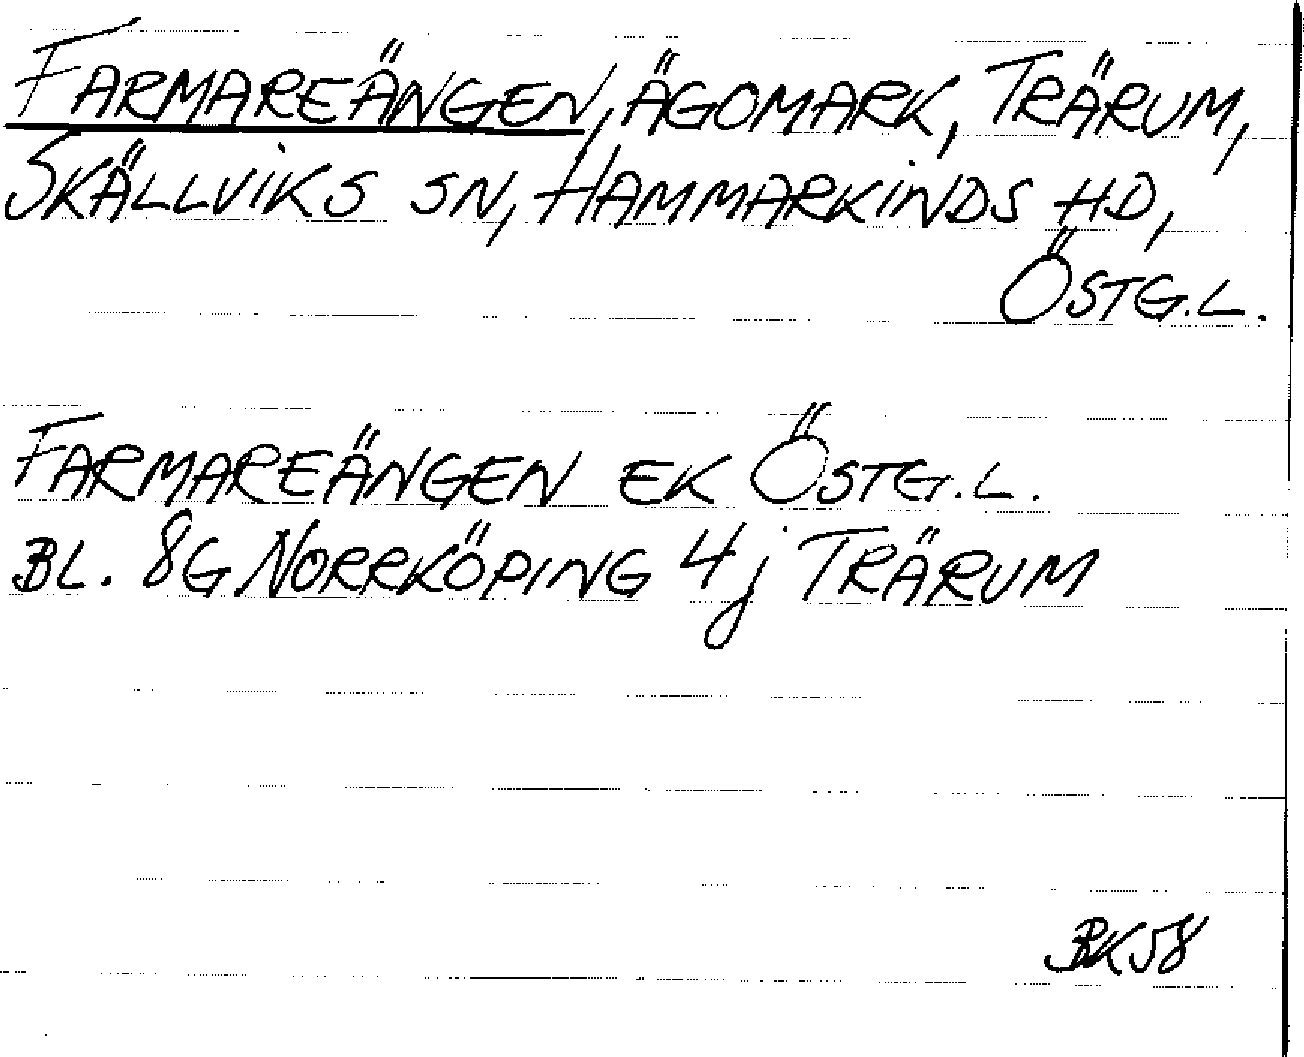 FARMAREÄNGEN, ÄGOMARK, TRÄRUM,
SKÄLLVIKS SN, HAMMARKINDS HD,
ÖSTG.L.
FARMAREÄNGEN EK ÖSTG.L.
BL. 8G NORRKÖPING 4j TRÄRUM
BK58